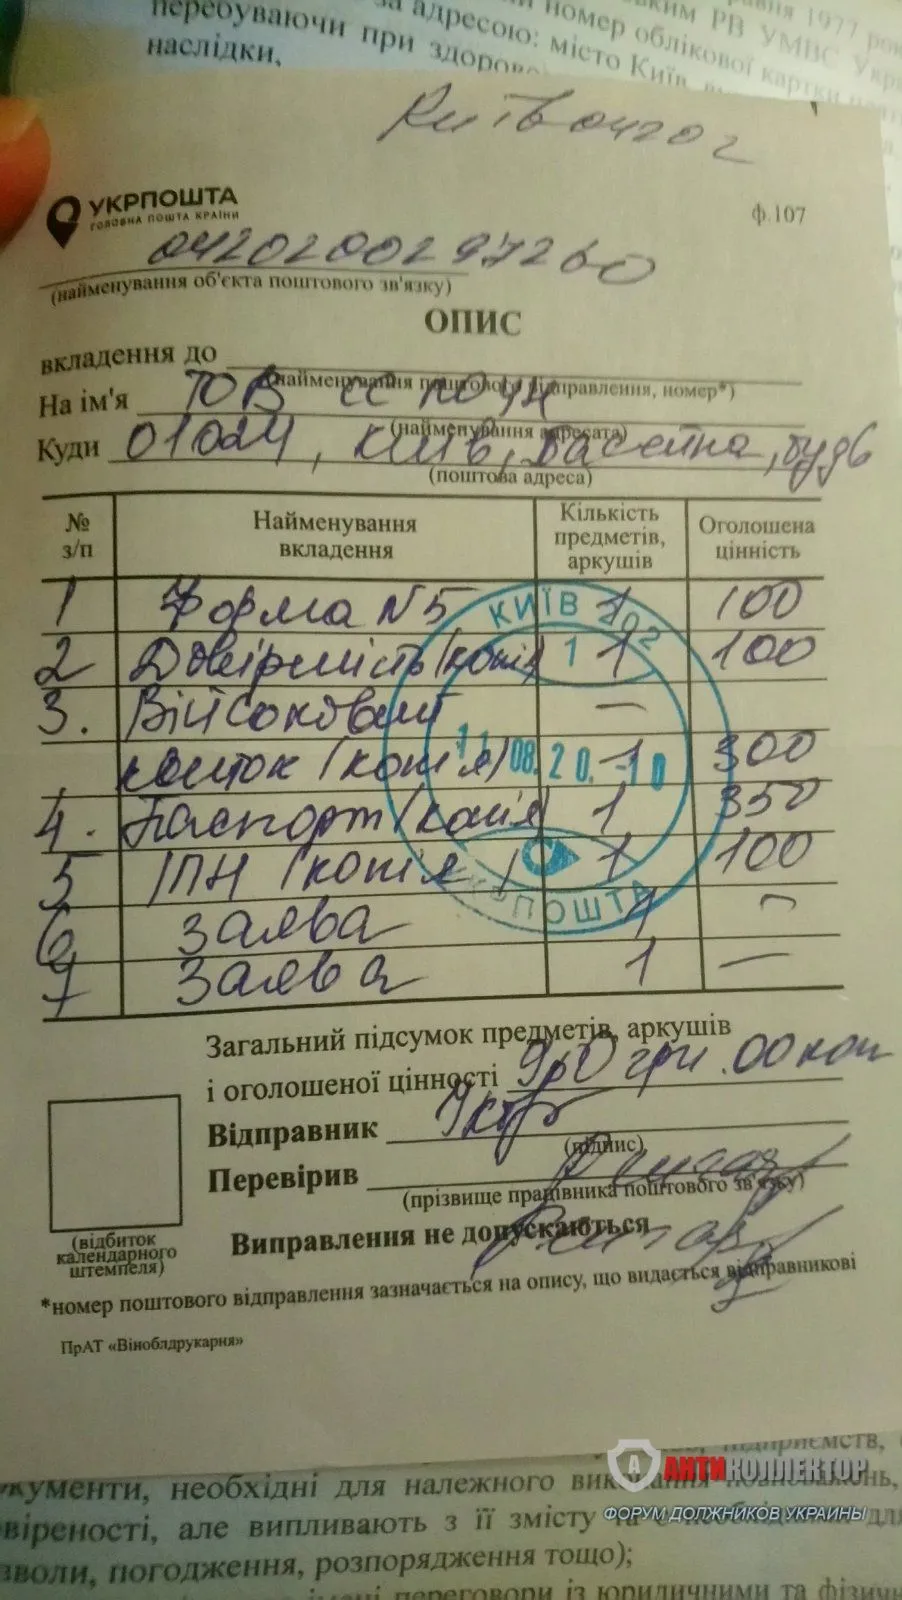 равня 1977 рок
ським РВ УМВС Укра
й номер облікової картки
перебуваючи при здоров
за адресою: місто Київ
наслідки,
Київ 04202
УКРПОШТА
ГОЛОВНА ПОШТА КРАЇНИ
ф.107
0420200297260
(найменування об'єкта поштового зв'язку)
ОПИС
вкладення до
(найменування поштового відправлення, номер*)
На ім'я ТОВ
(найменування адресата)
Куди 01024, Київ, Басейна, буд 6
(поштова адреса)
№ з/п
Найменування вкладення
Кількість предметів, аркушів
Оголошена цінність
1 Форма N5 1 100
2 Довірність (копія) 1 100
3. Військовий —
квиток (копія) 1 300
4. Паспорт (копія) 1 350
5 ІПН (копія) 1 100
6 Заява 1 —
7 Заява 1 —
КИЇВ 202
1
11.08.20.-10
УКРПОШТА
Загальний підсумок предметів, аркушів
і оголошеної цінності 950 грн .00 коп
Відправник
(підпис)
Перевірив
(прізвище працівника поштового зв'язку)
Виправлення не допускаються
(відбиток
календарного
штемпеля)
*номер поштового відправлення зазначається на опису, що видається відправникові
ПрАТ «Віноблдрукарня»
підприємств,
АНТИКОЛЛЕКТОР
ФОРУМ ДОЛЖНИКОВ УКРАИНЫ
кументи, необхідні для належного виконання повноважень,
віреності, але випливають з її змісту
зволи, погодження, розпорядження тощо);
імені переговори із юридичними та фізич